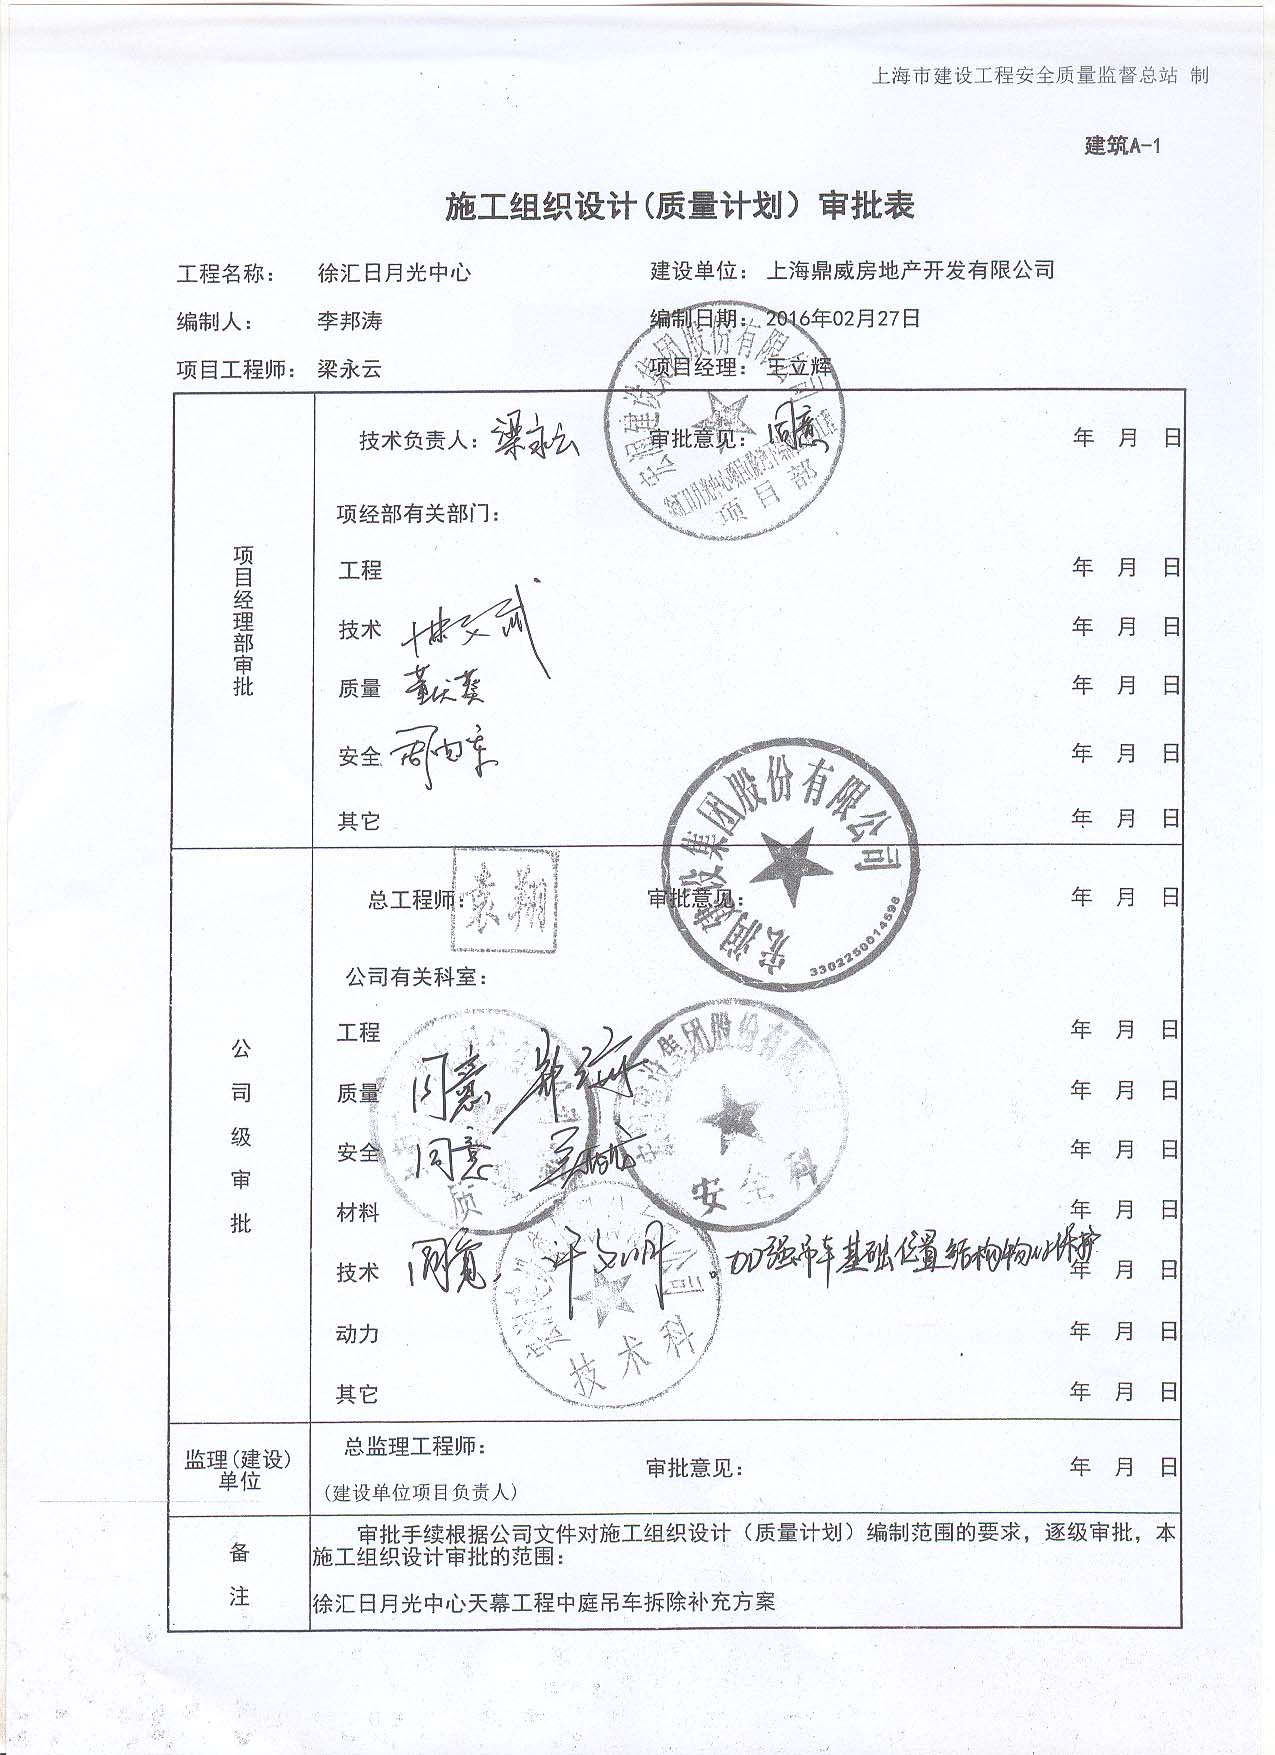 上海市建设工程安全质量监督总站 制
建筑A-1
施工组织设计(质量计划) 审批表
工程名称: 徐汇日月光中心 建设单位: 上海鼎威房地产开发有限公司
编制人: 李邦涛 编制日期: 2016年02月27日
项目工程师: 梁永云 项目经理: 王立辉
宏润建设集团股份有限公司
项目部
项目经理部审批
技术负责人: 梁永云 审批意见: 同意 年 月 日
项经部有关部门:
工程 年 月 日
技术 年 月 日
质量 年 月 日
安全 年 月 日
其它 年 月 日
宏润建设集团股份有限公司
3302250014598
公司级审批
总工程师: 袁翔 审批意见: 年 月 日
公司有关科室:
工程 年 月 日
质量 同意 年 月 日
安全 同意 年 月 日
安全科
材料 年 月 日
技术 同意, 许文明 。加强吊车基础位置结构物 保护 年 月 日
技术科
动力 年 月 日
其它 年 月 日
监理(建设)单位
总监理工程师:
(建设单位项目负责人)
审批意见: 年 月 日
备注
审批手续根据公司文件对施工组织设计(质量计划)编制范围的要求,逐级审批,本
施工组织设计审批的范围:
徐汇日月光中心天幕工程中庭吊车拆除补充方案